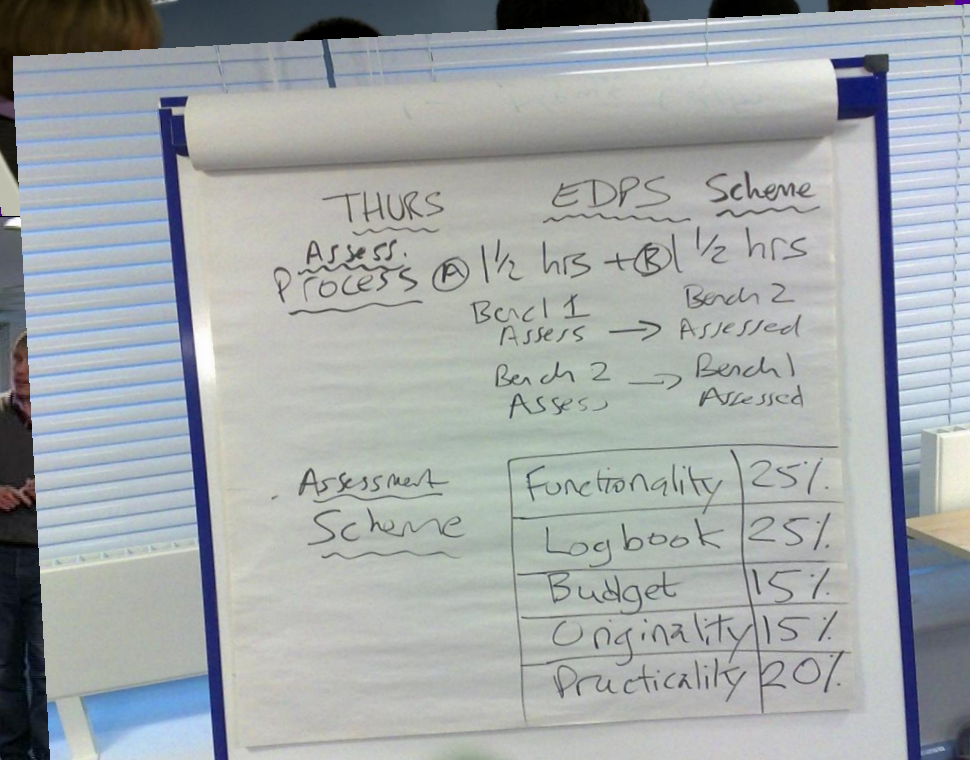 THURS EDPS Scheme
Assess.
Process Ⓐ 1 1/2 hrs + Ⓑ 1 1/2 hrs
Bencl 1 Bench 2
Assess → Assessed
Bench 2 → Bench 1
Assess Assessed
Assessment
Scheme
Functionality 25%
Logbook 25%
Budget 15%
Originality 15%
Practicality 20%